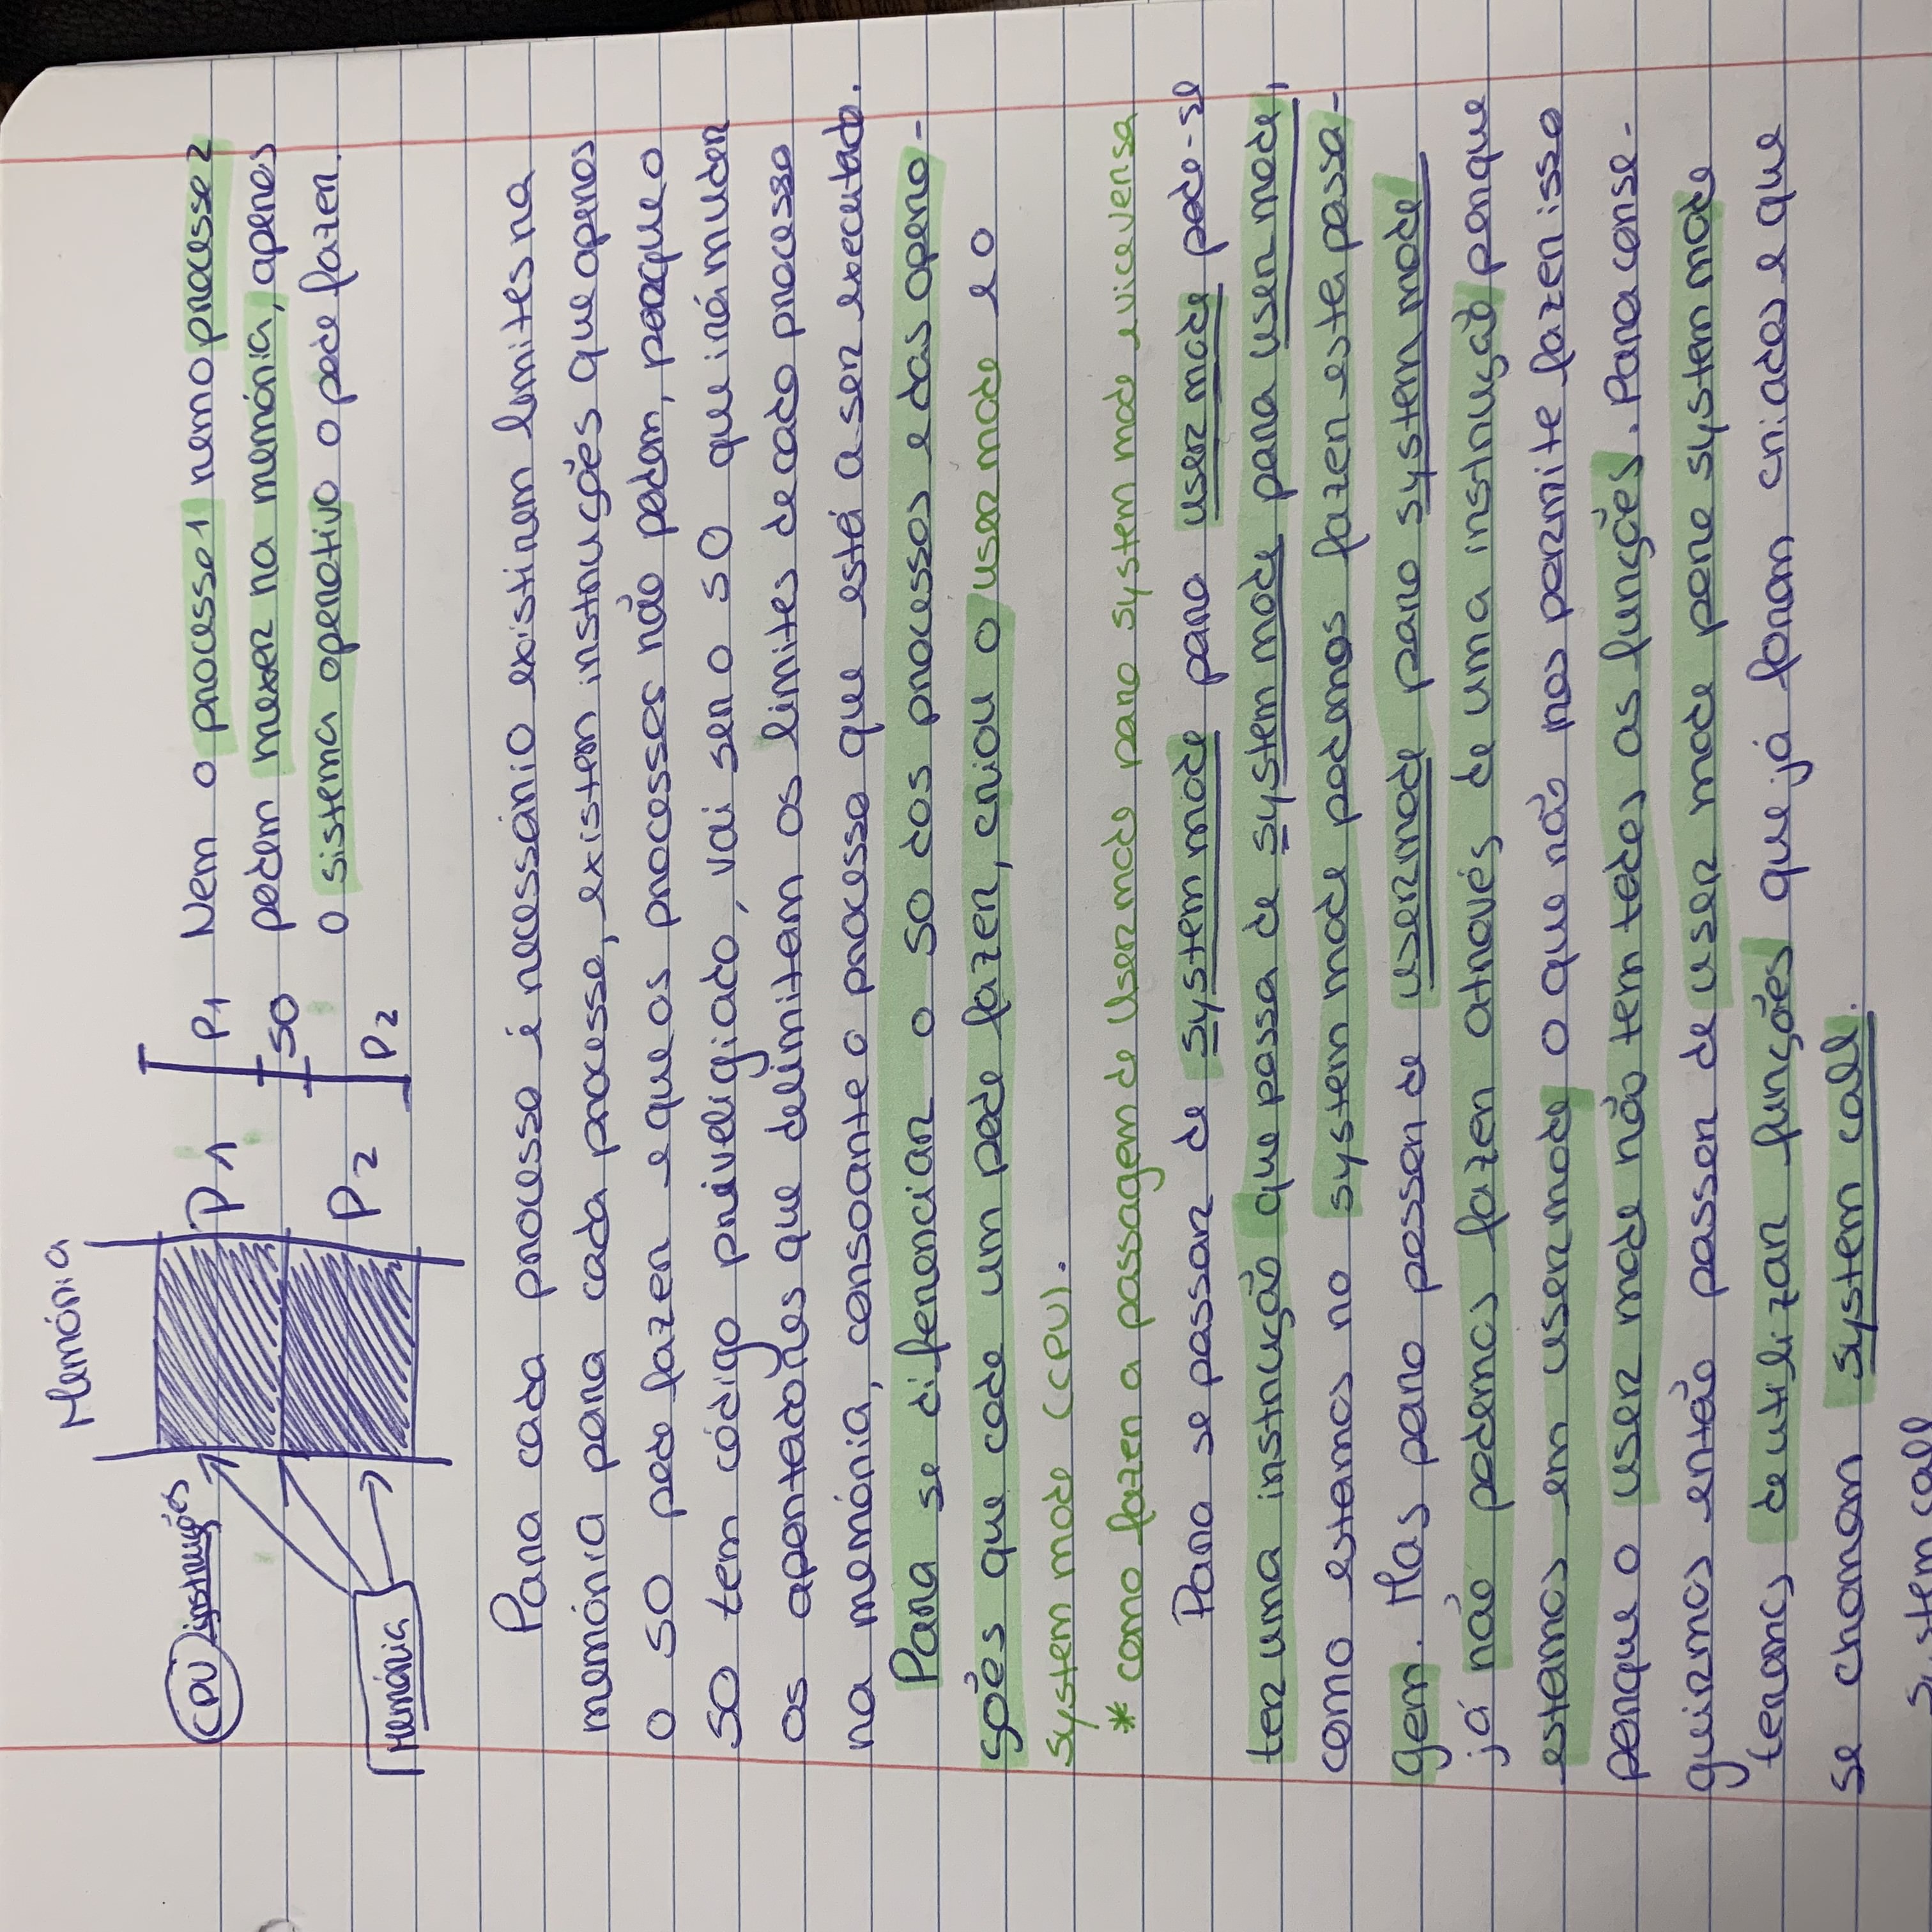 Memória
CPU instruções
P1
P1
SO
P2
P2
Memória
Nem o processo 1 nem o processo 2
podem mexer na memória, apenas
o sistema operativo o pode fazer.
Para cada processo é necessário existirem limites na
memória para cada processo, existem instruções que apenas
o SO pode fazer e que os processos não podem, porque o
SO tem código priveligiado, vai ser o SO que irá mudar
os apontadores que delimitam os limites de cada processo
na memória, consoante o processo que está a ser executado.
Para se diferenciar o SO dos processos e das opera-
ções que cada um pode fazer, criou o user mode e o
system mode (CPU).
* como fazer a passagem de User mode para system mode e vice versa
Para se passar de system mode para user mode pode-se
ter uma instrução que passa de system mode para user mode,
como estamos no system mode podemos fazer esta passa-
gem. Mas para passar de user mode para system mode
já não podemos fazer através de uma instrução porque
estamos em user mode o que não nos permite fazer isso
porque o user mode não tem todas as funções. Para conse-
guirmos então passar de user mode para system mode
teramos de utilizar funções que já foram criadas e que
se chamam system call.
System call